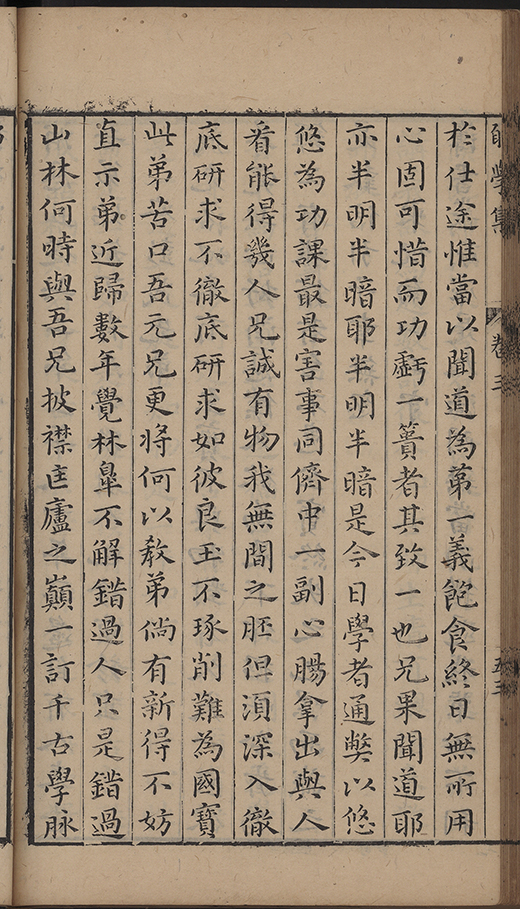 學集 卷三
於仕途惟當以聞道為第一義飽食終日無所用
心固可惜而功虧一簣者其致一也兄果聞道耶
亦半明半暗耶半明半暗是今日學者通弊以悠
悠為功課最是害事同儕中一副心腸拿出與人
看能得幾人兄誠有物我無間之胚但湏深入徹
底研求不徹底研求如彼良玉不琢削難為國寶
此弟苦口吾元兄更將何以教弟倘有新得不妨
直示弟近歸數年覺林臯不解錯過人只是錯過
山林何時與吾兄披襟匡廬之巔一訂千古學脉